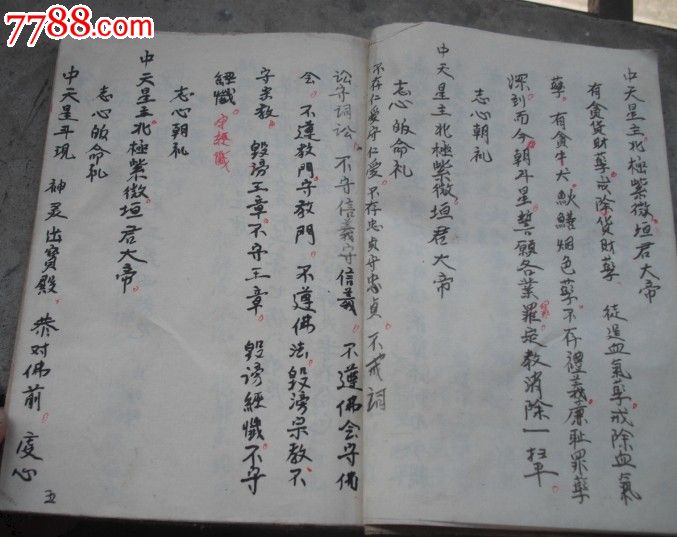 7788.com
中天星主北極紫微垣君大帝
有貪貨財孽戒除貨財孽 從造血氣孽戒除血氣
孽 有貪牛犬 魚鱔烟色孽不存禮義廉耻罪孽
深到而今朝斗星誓願各業罪定教消除一扫平
志心朝礼
中天星主北極紫微垣君大帝
志心皈命礼
不存仁爱守仁爱 不存忠貞守忠貞 不戒詞
訟守詞訟 不守信義守信義 不遵佛会守佛
会 不遵教門守教門 不遵佛法毀謗宗教不
守宗教 毀謗王章不守王章 毀謗經懺不守
經懺 守经懺
志心朝礼
中天星主北極紫微垣君大帝
志心皈命礼
中天星斗現 神灵出寶殿 恭对佛前 度心
五